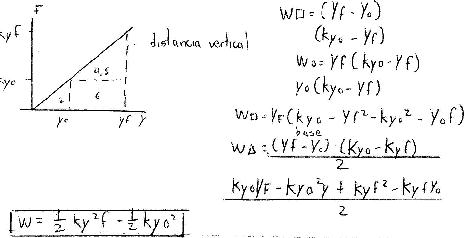 F
kyf
kyo
yo
yf y
distancia vertical
W□ = (yf - yo)
(kyo - yf)
Wo = yf (kyo - yf)
yo (kyo - yf)
W□ = yf (kyo - yf² - kyo² - yof)
base
W∆ = (yf - yo) · (kyo - kyf)
2
kyoyf - kyo²y + kyf² - kyfyo
2
W = 1/2 ky²f - 1/2 kyo²